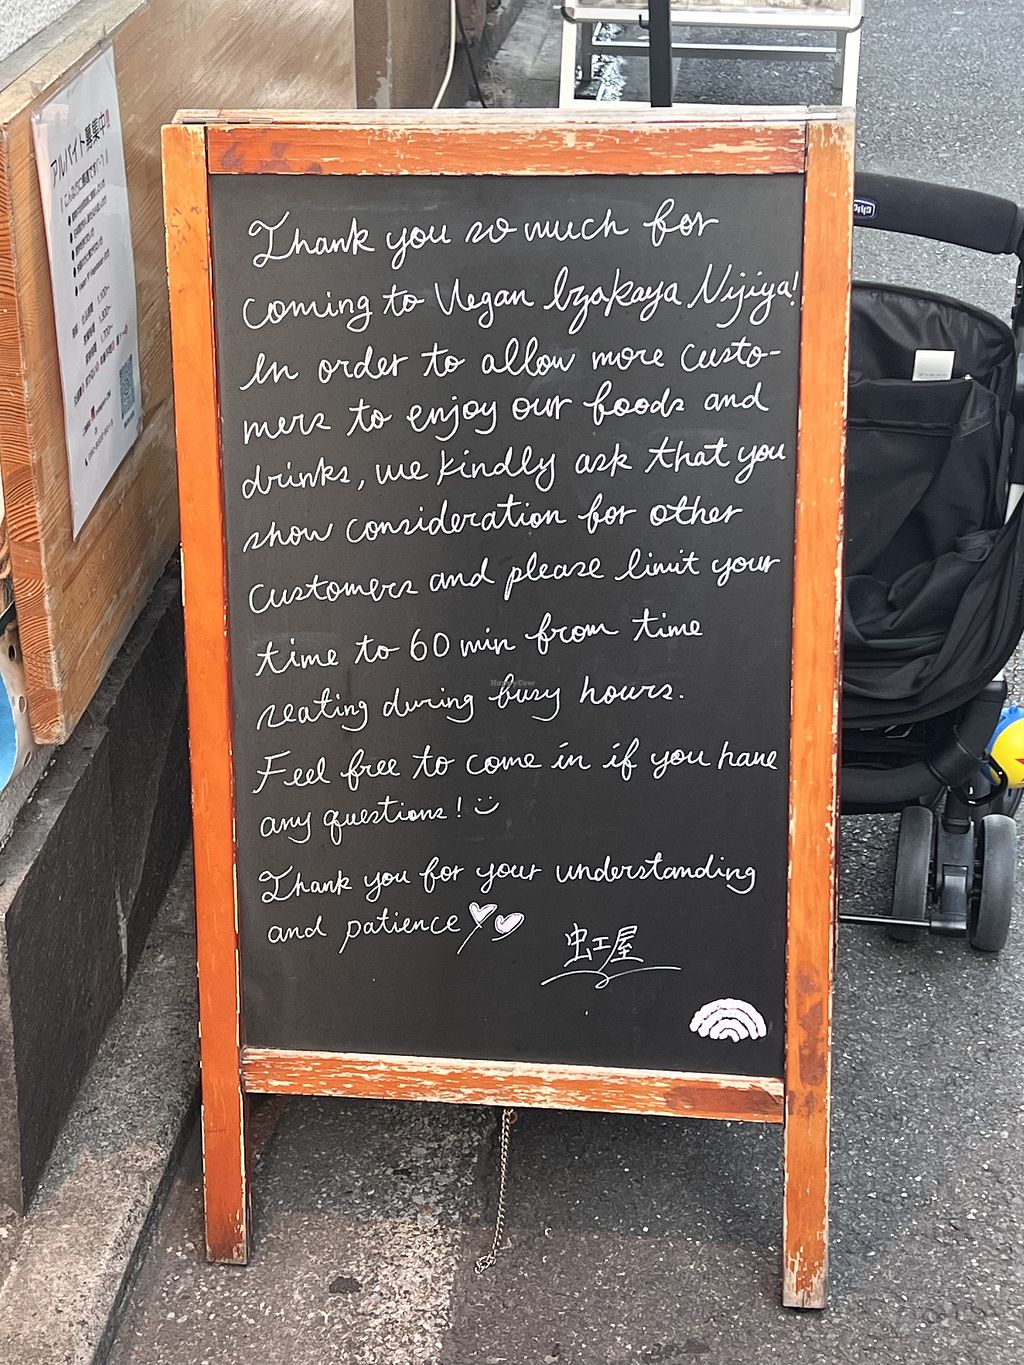 Thank you so much for
coming to Vegan Izakaya Nijiya!
In order to allow more custo-
mers to enjoy our foods and
drinks, we kindly ask that you
show consideration for other
customers and please limit your
time to 60 min from time
seating during busy hours.
Feel free to come in if you have
any questions!
Thank you for your understanding
and patience
虹屋
アルバイト募集中!!
chicco
HappyCow